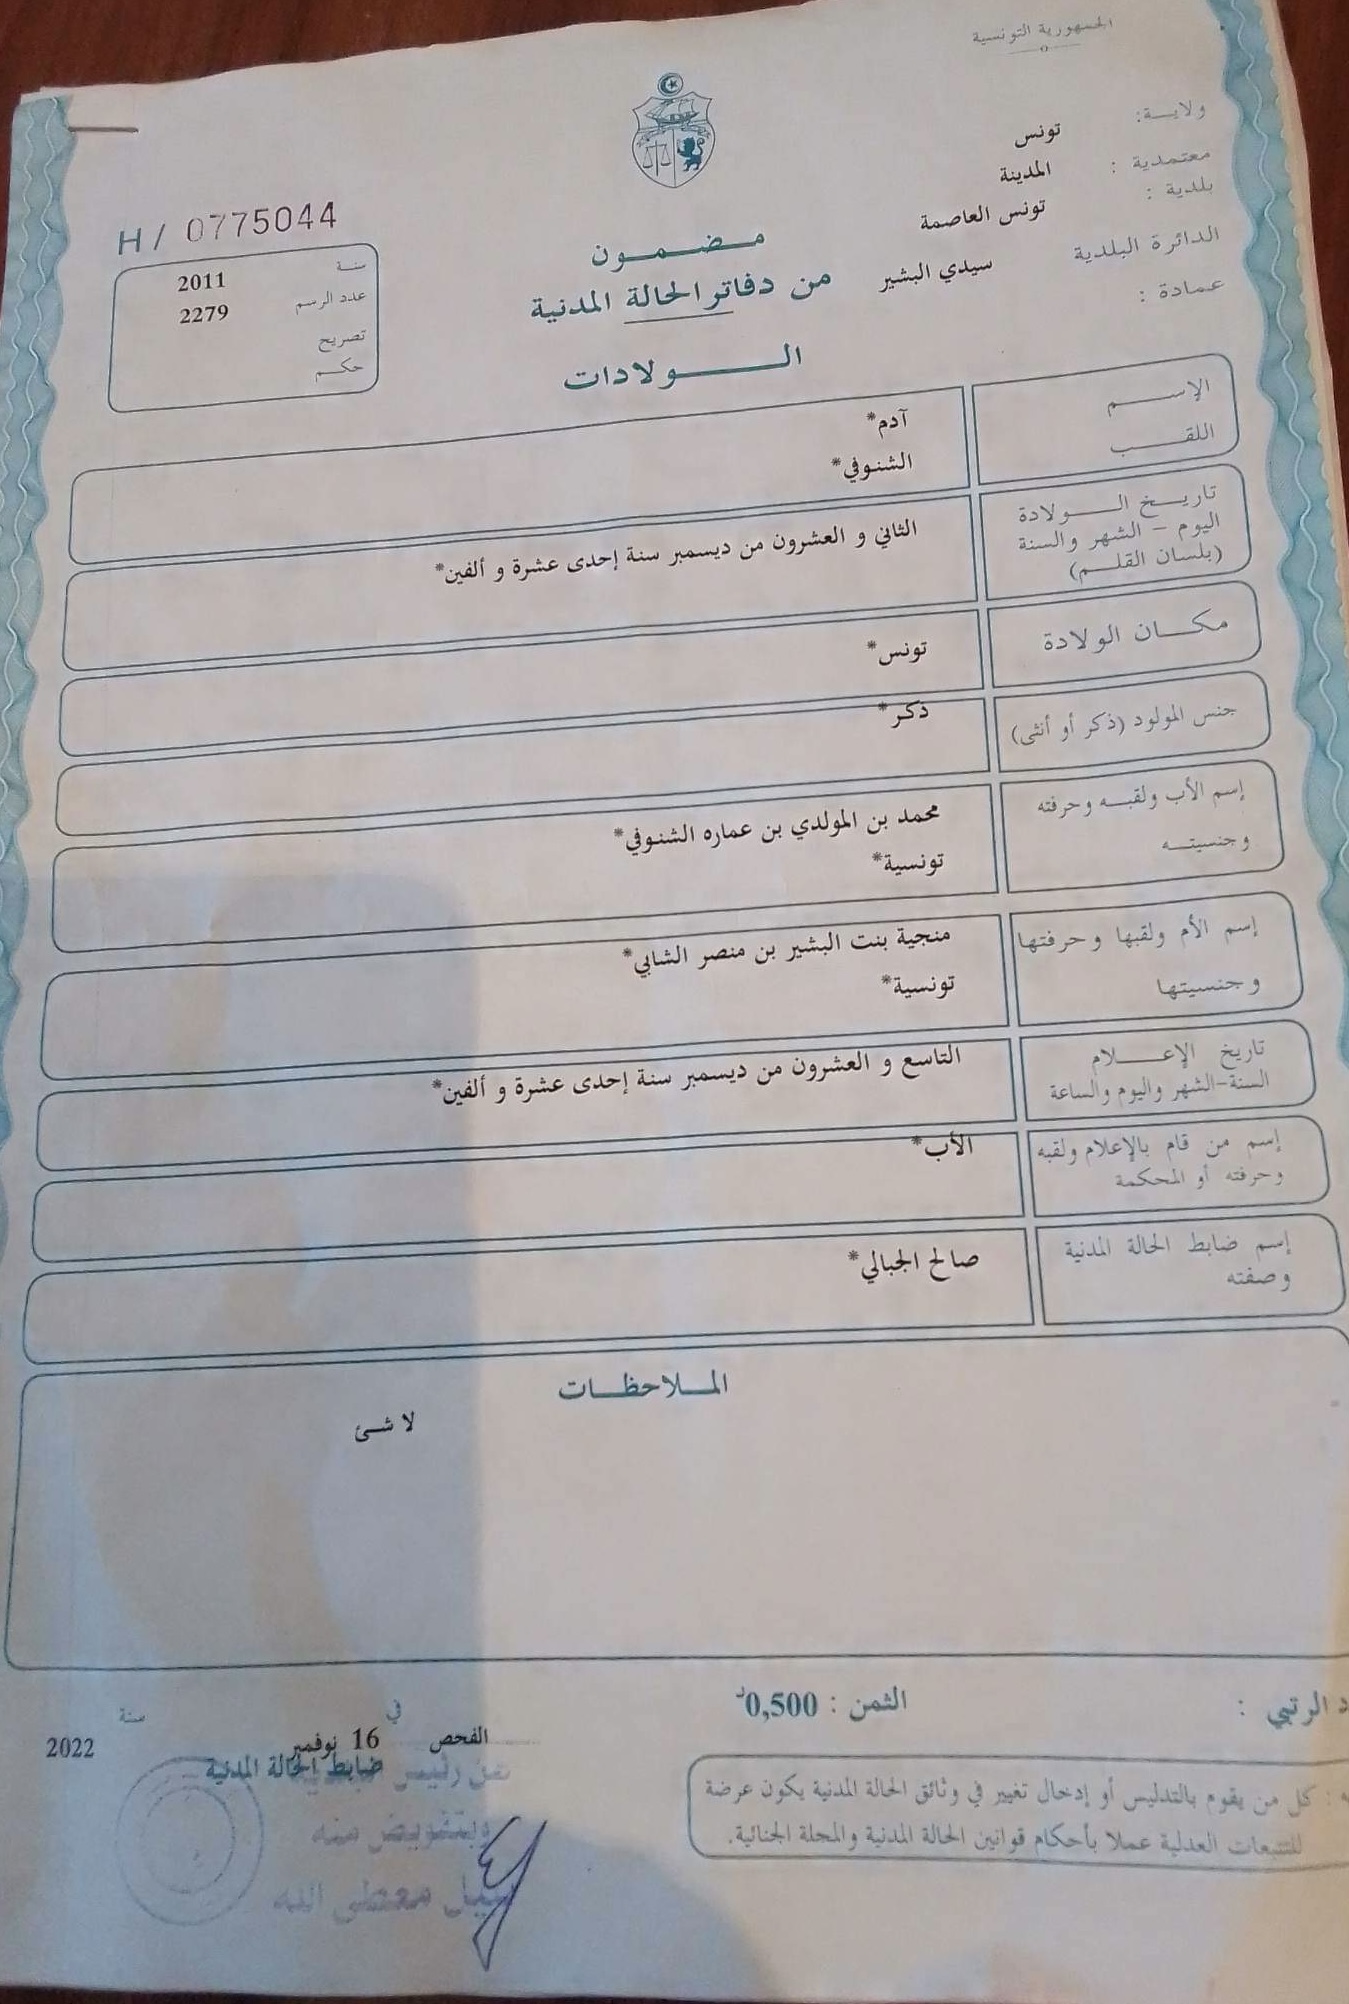 الجمهورية التونسية
ولاية: تونس
معتمدية : المدينة
بلدية : تونس العاصمة
الدائرة البلدية سيدي البشير
عمادة :
H/ 0775044
سنة 2011
عدد الرسم 2279
تصريح
حكم
مضمون
من دفاتر الحالة المدنية
الولادات
الإسم آدم*
اللقب الشنوفي*
تاريخ الولادة
اليوم – الشهر والسنة
(بلسان القلم)
الثاني و العشرون من ديسمبر سنة إحدى عشرة و ألفين*
مكان الولادة تونس*
جنس المولود (ذكر أو أنثى) ذكر*
إسم الأب ولقبه وحرفته
وجنسيته
محمد بن المولدي بن عماره الشنوفي*
تونسية*
إسم الأم ولقبها وحرفتها
وجنسيتها
منجية بنت البشير بن منصر الشابي*
تونسية*
تاريخ الإعلام
السنة-الشهر واليوم والساعة
التاسع و العشرون من ديسمبر سنة إحدى عشرة و ألفين*
إسم من قام بالإعلام ولقبه
وحرفته أو المحكمة
الأب*
إسم ضابط الحالة المدنية
وصفته
صالح الجبالي*
الملاحظات
لا شئ
الرتبي :
الثمن : 0,500د
كل من يقوم بالتدليس أو إدخال تغيير في وثائق الحالة المدنية يكون عرضة
للتتبعات العدلية عملا بأحكام قوانين الحالة المدنية والمجلة الجنائية.
الفحص في 16 نوفمبر سنة 2022
ضابط الحالة المدنية
عن رئيس
وبتفويض منه
معطى الله